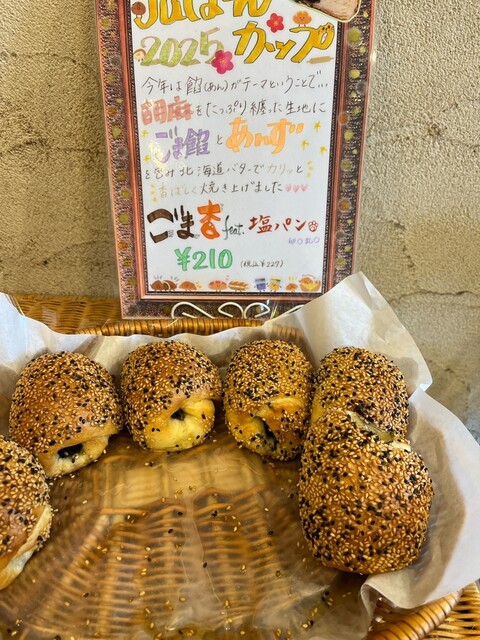 2025 カップ
今年は餡(あん)がテーマということで…
胡麻をたっぷり纏った生地に
ごま餡とあんず
を包み北海道バターでカリッと
香ばしく焼き上げました
ごま杏 feat. 塩パン
¥210 (税込¥227)